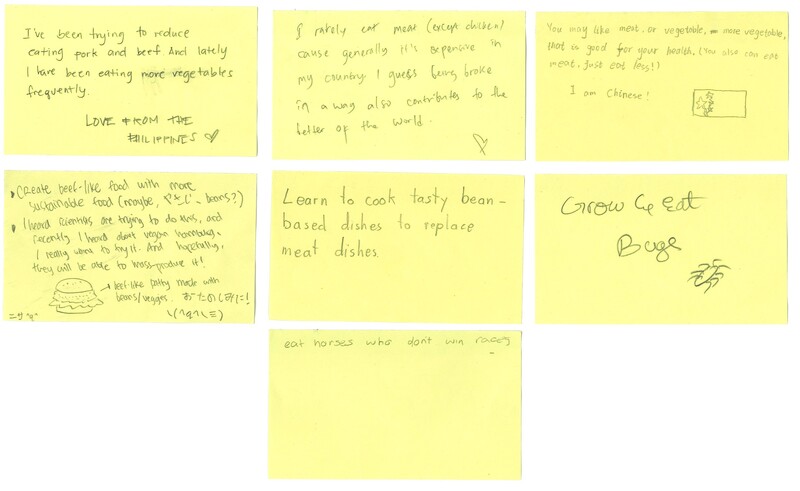 I've been trying to reduce
eating pork and beef. And lately
I have been eating more vegetables
frequently.
LOVE FROM THE
PHILIPPINES
I rarely eat meat (except chicken)
cause generally it's expensive in
my country. I guess being broke
in a way also contributes to the
better of the world.
You may like meat. or vegetable, more vegetable,
that is good for your health. (You also can eat
meat, just eat less!)
I am Chinese!
• Create beef-like food with more
sustainable food (maybe, beans?)
• I heard scientists are trying to do this, and
recently I heard about vegan hamburger,
I really want to try it. And hopefully,
they will be able to mass-produce it!
→ beef-like patty made with
beans/veggies.
Learn to cook tasty bean-
based dishes to replace
meat dishes.
Grow & eat
Bugs
eat horses who dont win races